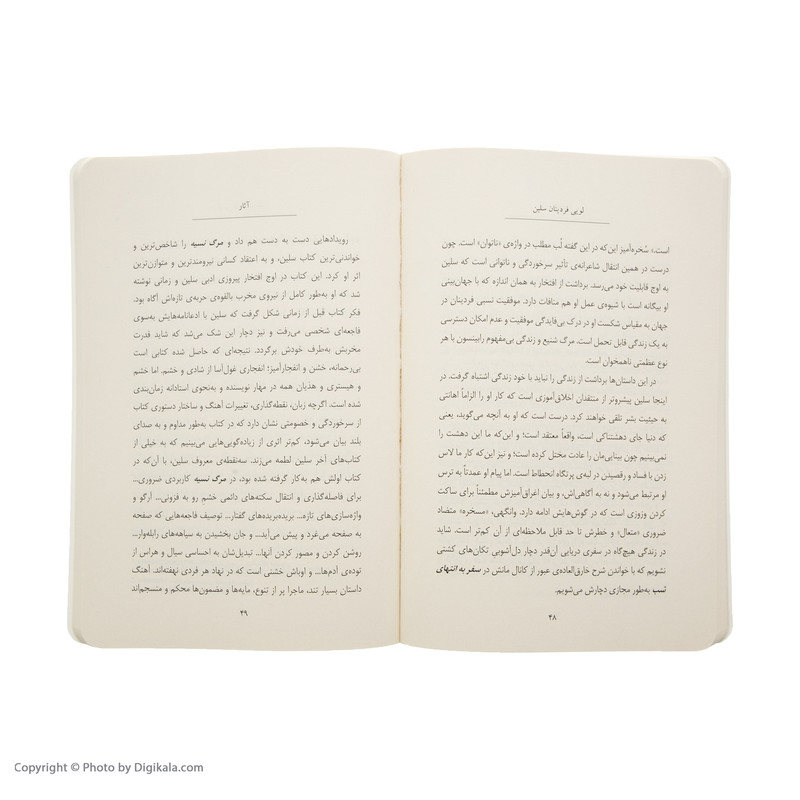 لویی فردینان سلین
است.» سُخره‌آمیز این‌که در این گفته لُب مطلب در واژه‌ی «ناتوان» است. چون
درست در همین انتقال شاعرانه‌ی تأثیر سرخوردگی و ناتوانی است که سلین
به اوج قابلیت خود می‌رسد. برداشت از افتخار به همان اندازه که با جهان‌بینی
او بیگانه است با شیوه‌ی عمل او هم منافات دارد. موفقیت نسبی فردینان در
جهان به مقیاس شکست او در درک بی‌فایدگی موفقیت و عدم امکان دسترسی
به یک زندگی قابل تحمل است. مرگ شنیع و زندگی بی‌مفهوم رابینسون با هر
نوع عظمتی ناهمخوان است.
در این داستان‌ها برداشت از زندگی را نباید با خود زندگی اشتباه گرفت. در
اینجا سلین پیشروتر از منتقدان اخلاق‌آموزی است که کار او را الزاماً اهانتی
به حیثیت بشر تلقی خواهند کرد. درست است که او به آنچه می‌گوید، یعنی
که دنیا جای دهشتناکی است، واقعاً معتقد است؛ و این‌که ما این دهشت را
نمی‌بینیم چون بینایی‌مان را عادت مختل کرده است؛ و نیز این‌که کار ما لاس
زدن با فساد و رقصیدن در لبه‌ی پرتگاه انحطاط است. اما پیام او عمدتاً به ترس
او مرتبط می‌شود و نه به آگاهی‌اش، و بیان اغراق‌آمیزش مطمئناً برای ساکت
کردن وزوزی است که در گوش‌هایش ادامه دارد. وانگهی، «مسخره» متضاد
ضروری «متعال» و خطرش تا حد قابل ملاحظه‌ای از آن کم‌تر است. شاید
در زندگی هیچ‌گاه در سفری دریایی آن‌قدر دچار دل‌آشوبی تکان‌های کشتی
نشویم که با خواندن شرح خارق‌العاده‌ی عبور از کانال مانش در سفر به انتهای
شب به‌طور مجازی دچارش می‌شویم.
۴۸
آثار
رویدادهایی دست به دست هم داد و مرگ نسیه را شاخص‌ترین و
خواندنی‌ترین کتاب سلین، و به اعتقاد کسانی نیرومندترین و متوازن‌ترین
اثر او کرد. این کتاب در اوج افتخار پیروزی ادبی سلین و زمانی نوشته
شد که او به‌طور کامل از نیروی مخرب بالقوه‌ی حربه‌ی تازه‌اش آگاه بود.
فکر کتاب قبل از زمانی شکل گرفت که سلین با ادعانامه‌هایش به‌سوی
فاجعه‌ای شخصی می‌رفت و نیز دچار این شک می‌شد که شاید قدرت
مخربش به‌طرف خودش برگردد. نتیجه‌ای که حاصل شده کتابی است
بی‌رحمانه، خشن و انفجارآمیز؛ انفجاری غول‌آسا از شادی و خشم. اما خشم
و هیستری و هذیان همه در مهار نویسنده و به‌نحوی استادانه زمان‌بندی
شده است. اگرچه زبان، نقطه‌گذاری، تغییرات آهنگ و ساختار دستوری کتاب
از سرخوردگی و خصومتی نشان دارد که در کتاب به‌طور مداوم و به صدای
بلند بیان می‌شود، کم‌تر اثری از زیاده‌گویی‌هایی می‌بینیم که به خیلی از
کتاب‌های آخر سلین لطمه می‌زند. سه‌نقطه‌ی معروف سلین، با آن‌که در
کتاب اولش هم به‌کار گرفته شده بود، در مرگ نسیه کاربردی ضروری...
برای فاصله‌گذاری و انتقال سکته‌های دائمی خشم رو به فزونی... آرگو و
واژه‌سازی‌های تازه... بریده‌بریده‌های گفتار... توصیف فاجعه‌هایی که صفحه
به صفحه می‌غرد و پیش می‌آید... و جان بخشیدن به سیاهه‌های رابله‌وار...
روشن کردن و مصور کردن آنها... تبدیل‌شان به احساسی سیال و هراس از
توده‌ی آدم‌ها... و اوباش خشنی است که در نهاد هر فردی نهفته‌اند. آهنگ
داستان بسیار تند، ماجرا پر از تنوع، مایه‌ها و مضمون‌ها محکم و منسجم‌اند
۴۹
Copyright © Photo by Digikala.com